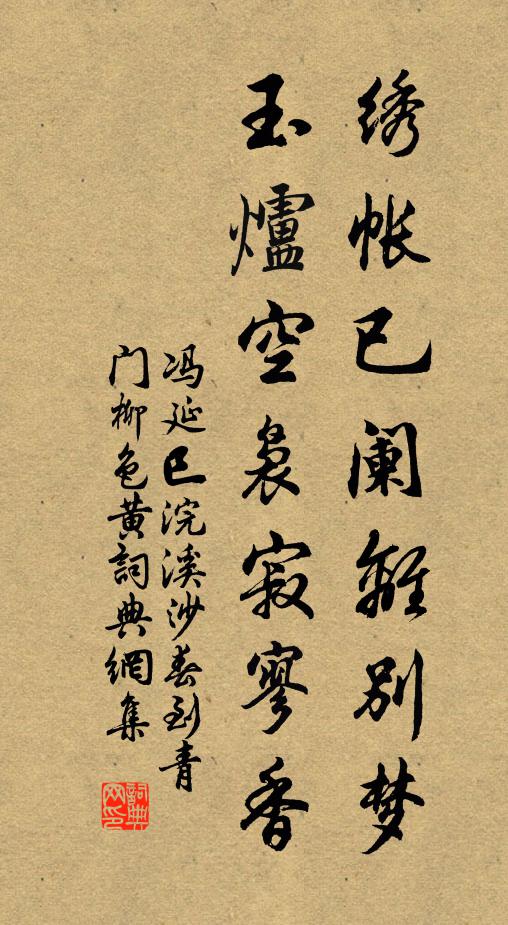 绣帐已阑离别梦
玉爐空袅寂寥香
冯延巳浣溪沙春到青
门柳色黄詞典網集
詞典
网印